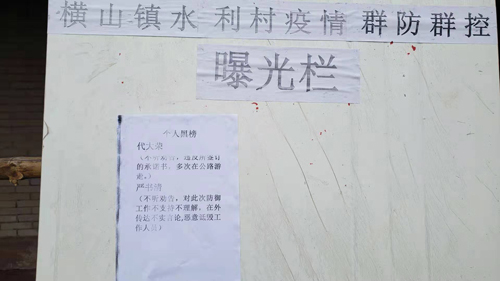 横山镇水利村疫情群防群控
曝光栏
个人黑榜
代大
的承诺书，多次在公路游
走。）
严书
（不听劝告，对此次防御
工作不支持不理解，在外
传达不实言论,恶意诋毁工
作人员）